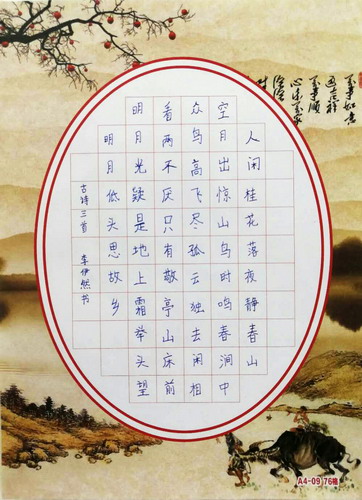 万事如意
人闲桂花落夜静春山
空月出惊山鸟时鸣春涧中
众鸟高飞尽孤云独去闲相
看两不厌只有敬亭山床前
明月光疑是地上霜举头望
明月低头思故乡
古诗三首 李伊然书
A4-09 76格